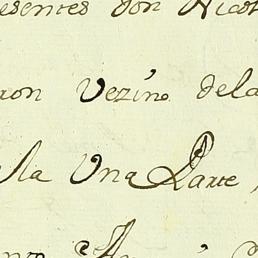 esentes don Nicol
ron Vezino dela
sla Una Parte,